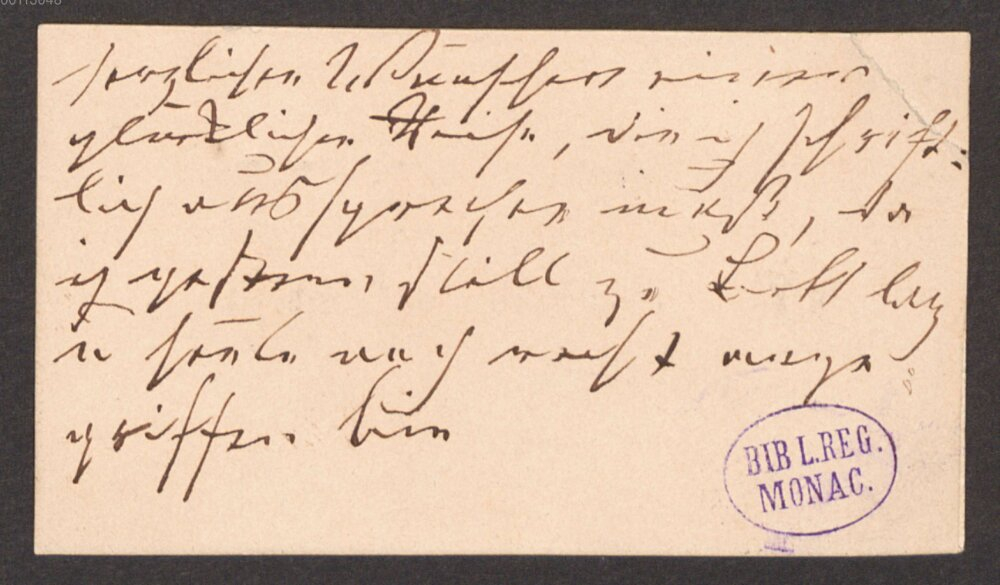 herzlichen Wünschen einer
glücklichen Reise, die ich schrift-
lich aussprechen muß, da
ich gestern still zu Bett lag
u heute noch recht ange
griffen bin
BIBL.REG.
MONAC.